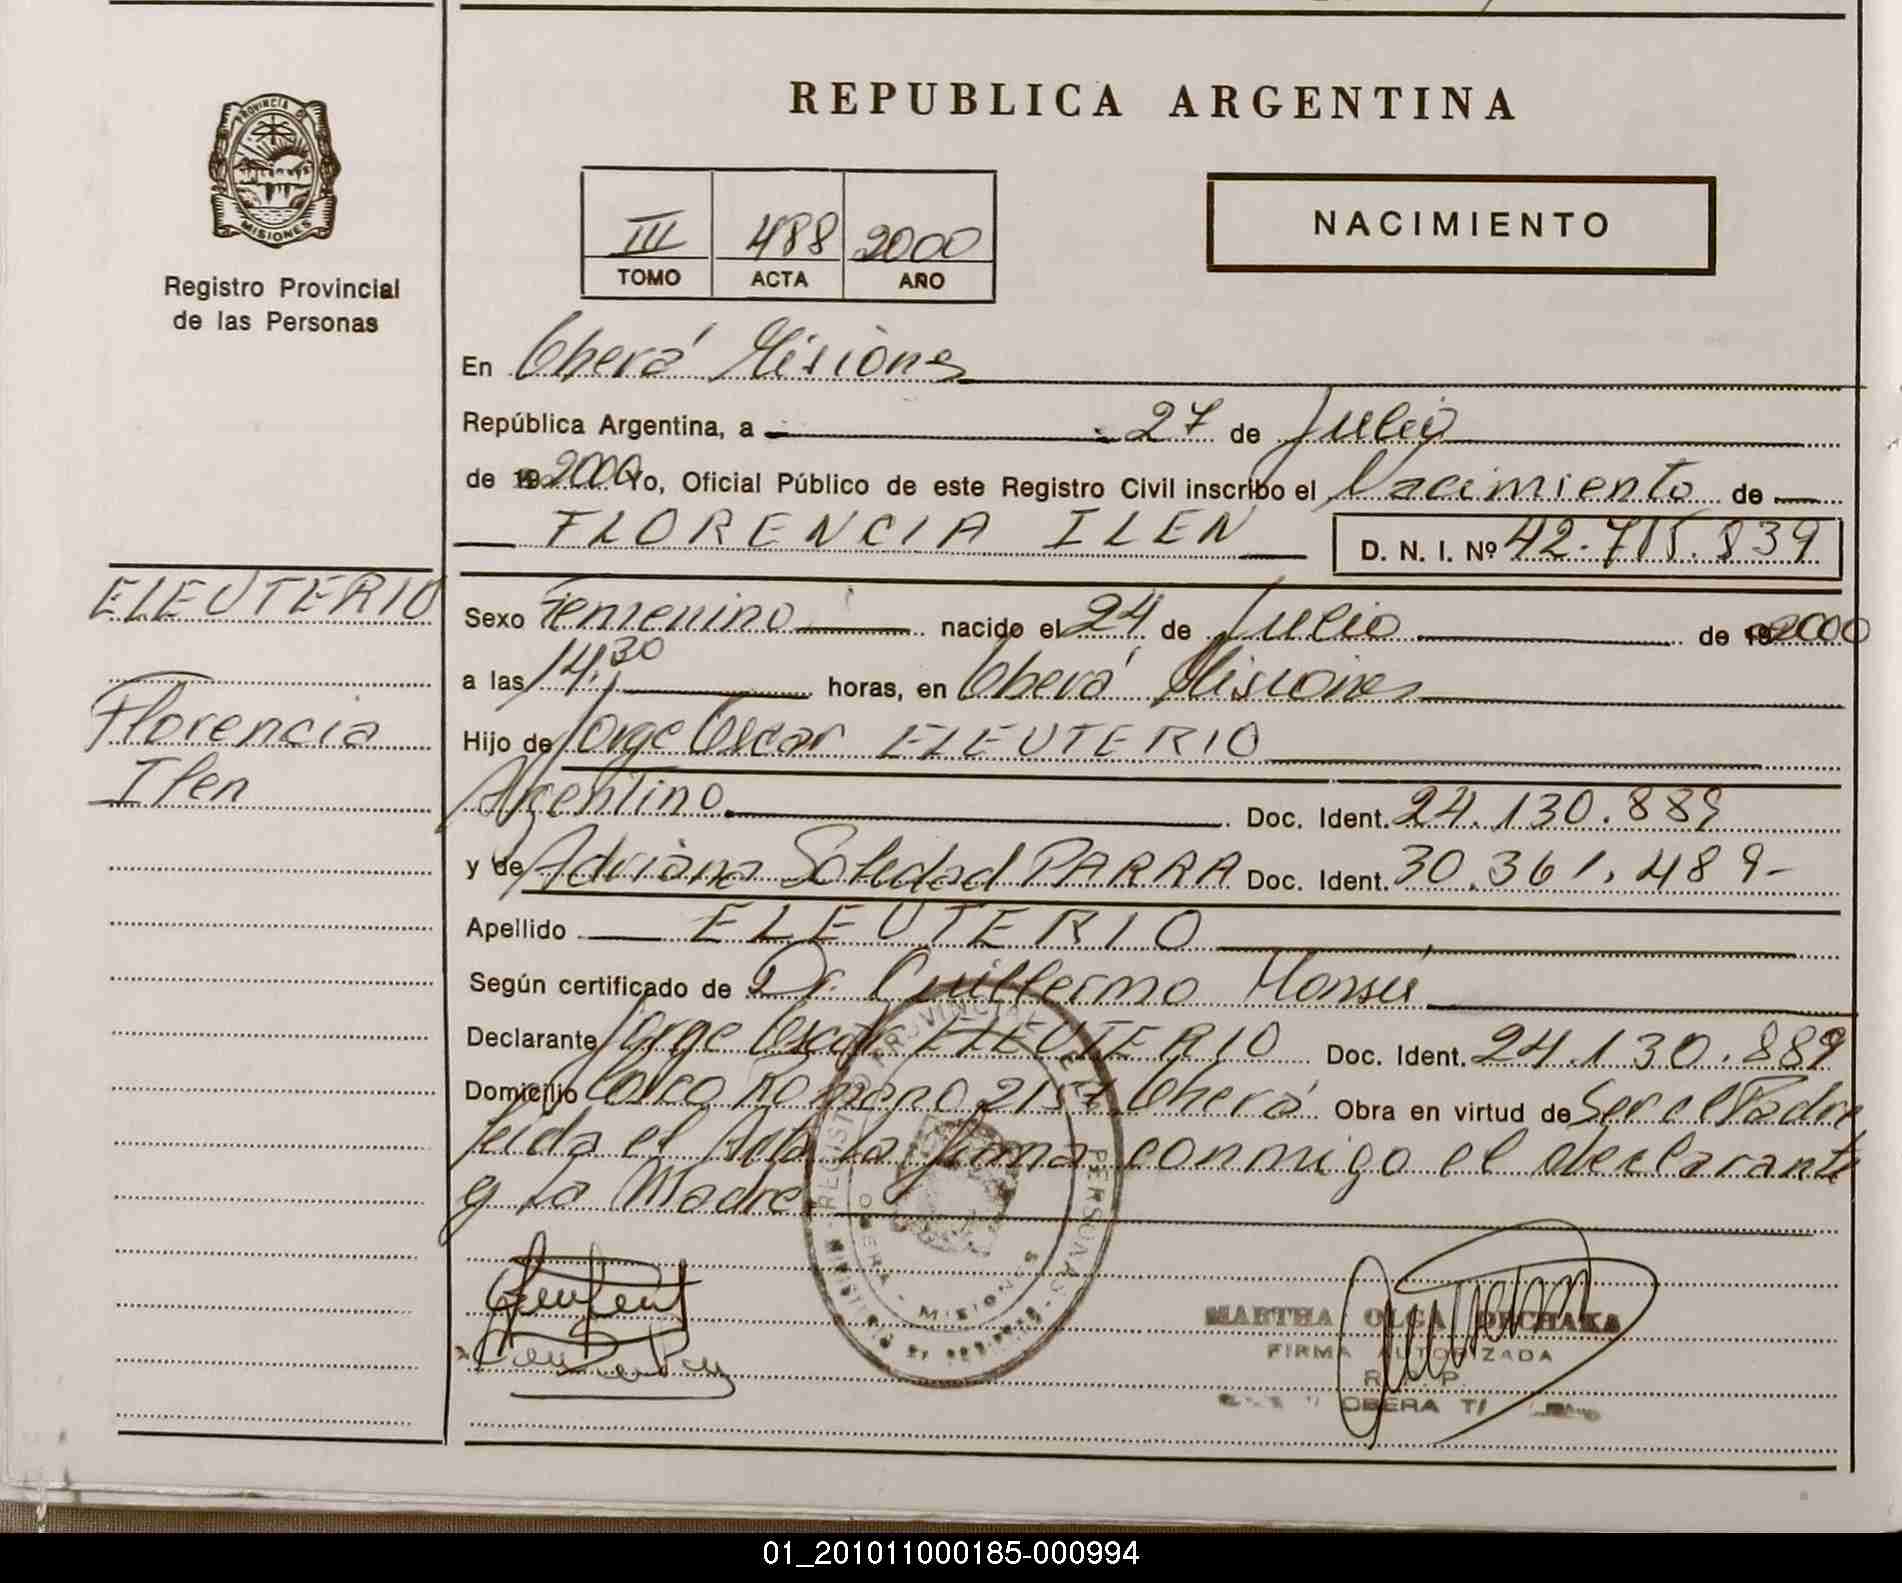 REPUBLICA ARGENTINA
PROVINCIA DE
MISIONES
Registro Provincial
de las Personas
III 488 2000
TOMO ACTA AÑO
NACIMIENTO
En Oberá Misiones
República Argentina, a 27 de Julio
de 19 2000 Yo, Oficial Público de este Registro Civil inscribo el Nacimiento de
FLORENCIA ILEN D. N. I. Nº 42.715.839
ELEUTERIO
Florencia
Ilen
Sexo Femenino nacido el 24 de Julio de 19 2000
a las 14,30 horas, en Oberá Misiones
Hijo de Jorge Oscar ELEUTERIO
Argentino Doc. Ident. 24.130.889
y de Adriana Soledad PARRA Doc. Ident. 30.361.489-
Apellido ELEUTERIO
Según certificado de Dr. Guillermo
Declarante Jorge Oscar ELEUTERIO Doc. Ident. 24.130.889
Domicilio Romano 2157 Oberá Obra en virtud de Ser el Padre
leida el Acta la firma conmigo el declarante
y la Madre
REGISTRO PROVINCIAL DE LAS PERSONAS
OBERA - MISIONES
MARTHA OLGA DECHAKA
FIRMA AUTORIZADA
R. P.
OBERA
01_201011000185-000994